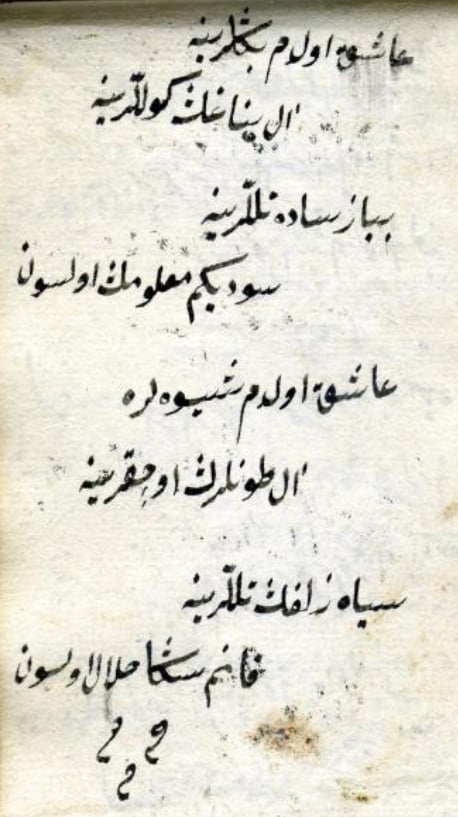 عاشق اولدم بكلرينه
ال يناغك كوللرينه
بياز ساده تللرينه
سوديكم معلومك اولسون
عاشق اولدم شيوه لره
ال طونلرك اوچقرينه
سياه زلفك تللرينه
قانم سكا حلال اولسون
م م
م